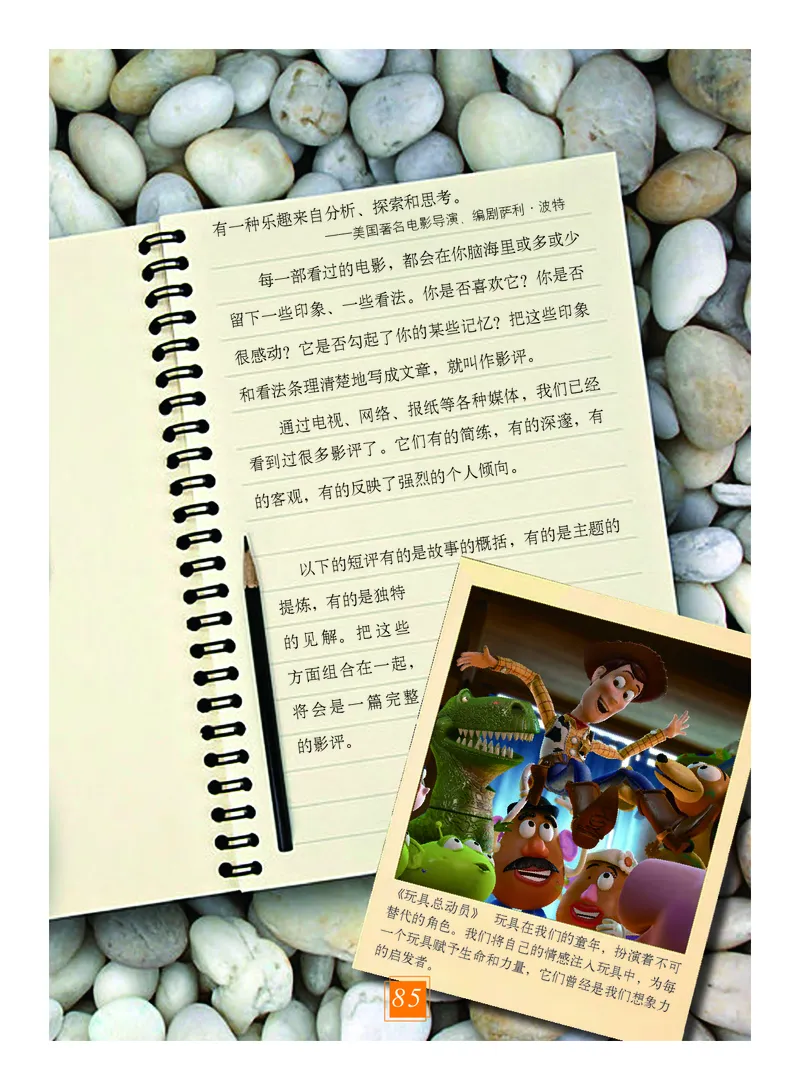 有一种乐趣来自分析、探索和思考。
——美国著名电影导演、编剧萨利·波特
每一部看过的电影，都会在你脑海里或多或少
留下一些印象、一些看法。你是否喜欢它？你是否
很感动？它是否勾起了你的某些记忆？把这些印象
和看法条理清楚地写成文章，就叫作影评。
通过电视、网络、报纸等各种媒体，我们已经
看到过很多影评了。它们有的简练，有的深邃，有
的客观，有的反映了强烈的个人倾向。
以下的短评有的是故事的概括，有的是主题的
提炼，有的是独特
的见解。把这些
方面组合在一起，
将会是一篇完整
的影评。
《玩具总动员》 玩具在我们的童年，扮演着不可
替代的角色。我们将自己的情感注入玩具中，为每
一个玩具赋予生命和力量，它们曾经是我们想象力
的启发者。
85